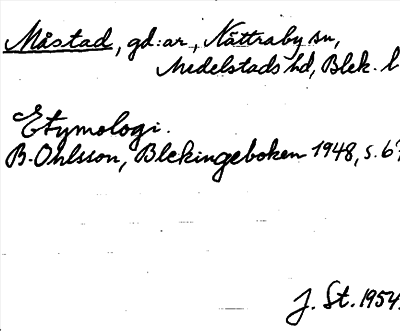 Måstad, gd:ar, Nättraby sn,
Medelstads hd, Blek. l
Etymologi.
B. Ohlsson, Blekingeboken 1948, s. 6
J. St. 1954.